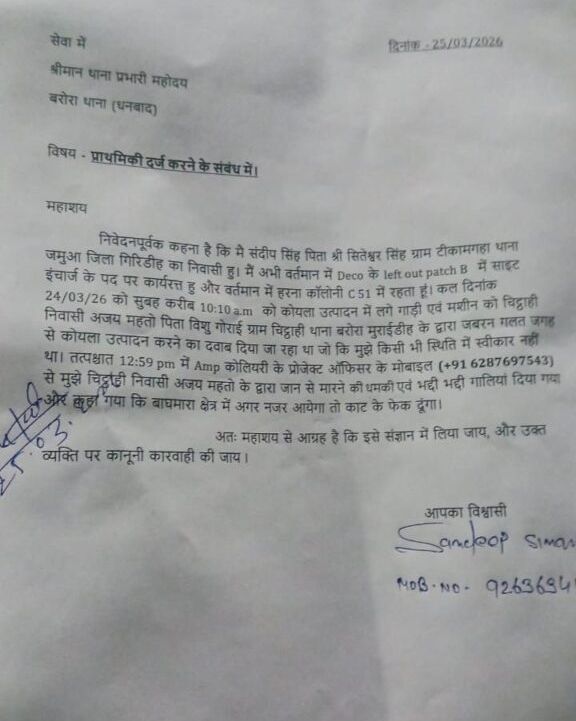 सेवा में
दिनांक - 25/03/2026
श्रीमान थाना प्रभारी महोदय
बरोरा थाना (धनबाद)
विषय - प्राथमिकी दर्ज करने के संबंध में।
महाशय
निवेदनपूर्वक कहना है कि मै संदीप सिंह पिता श्री सितेश्वर सिंह ग्राम टीकामगहा थाना
जमुआ जिला गिरिडीह का निवासी हु। मैं अभी वर्तमान में Deco के left out patch B में साइट
इंचार्ज के पद पर कार्यरत्त हु और वर्तमान में हरना कॉलोनी C 51 में रहता हूं। कल दिनांक
24/03/26 को सुबह करीब 10:10 a.m को कोयला उत्पादन में लगे गाड़ी एवं मशीन को चिट्ठाही
निवासी अजय महतो पिता विशु गोराई ग्राम चिट्ठाही थाना बरोरा मुराईडीह के द्वारा जबरन गलत जगह
से कोयला उत्पादन करने का दबाव दिया जा रहा था जो कि मुझे किसी भी स्थिति में स्वीकार नहीं
था। तत्पश्चात 12:59 pm में Amp कोलियरी के प्रोजेक्ट ऑफिसर के मोबाइल (+91 6287697543)
से मुझे चिट्ठाही निवासी अजय महतो के द्वारा जान से मारने की धमकी एवं भद्दी भद्दी गालियां दिया गया
और कहा गया कि बाघमारा क्षेत्र में अगर नजर आयेगा तो काट के फेक दूंगा।
अतः महाशय से आग्रह है कि इसे संज्ञान में लिया जाय, और उक्त
व्यक्ति पर कानूनी कारवाही की जाय।
आपका विश्वासी
Sandeep
MOB. NO - 9263694